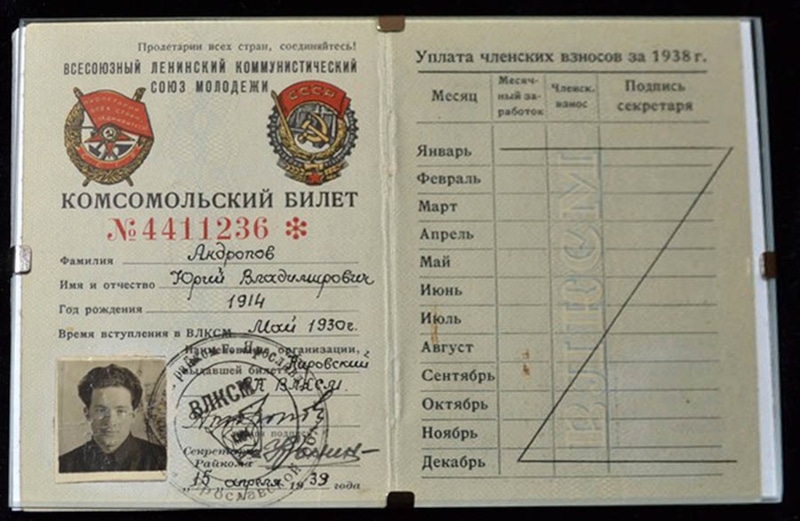 Пролетарии всех стран, соединяйтесь!
ВСЕСОЮЗНЫЙ ЛЕНИНСКИЙ КОММУНИСТИЧЕСКИЙ
СОЮЗ МОЛОДЕЖИ
СССР
КОМСОМОЛЬСКИЙ БИЛЕТ
№4411236 *
Фамилия Андропов
Имя и отчество Юрий Владимирович
Год рождения 1914
Время вступления в ВЛКСМ Май 1930г.
организации,
выдавшей билет Кировский
РК ВЛКСМ
ВЛКСМ
подпись
Секретарь
Райкома
"15" апреля 1939 года
Уплата членских взносов за 1938 г.
Месяц
Месяч-
ный за-
работок
Членск.
взнос
Подпись
секретаря
Январь
Февраль
Март
Апрель
Май
Июнь
Июль
Август
Сентябрь
Октябрь
Ноябрь
Декабрь
ВЛКСМ